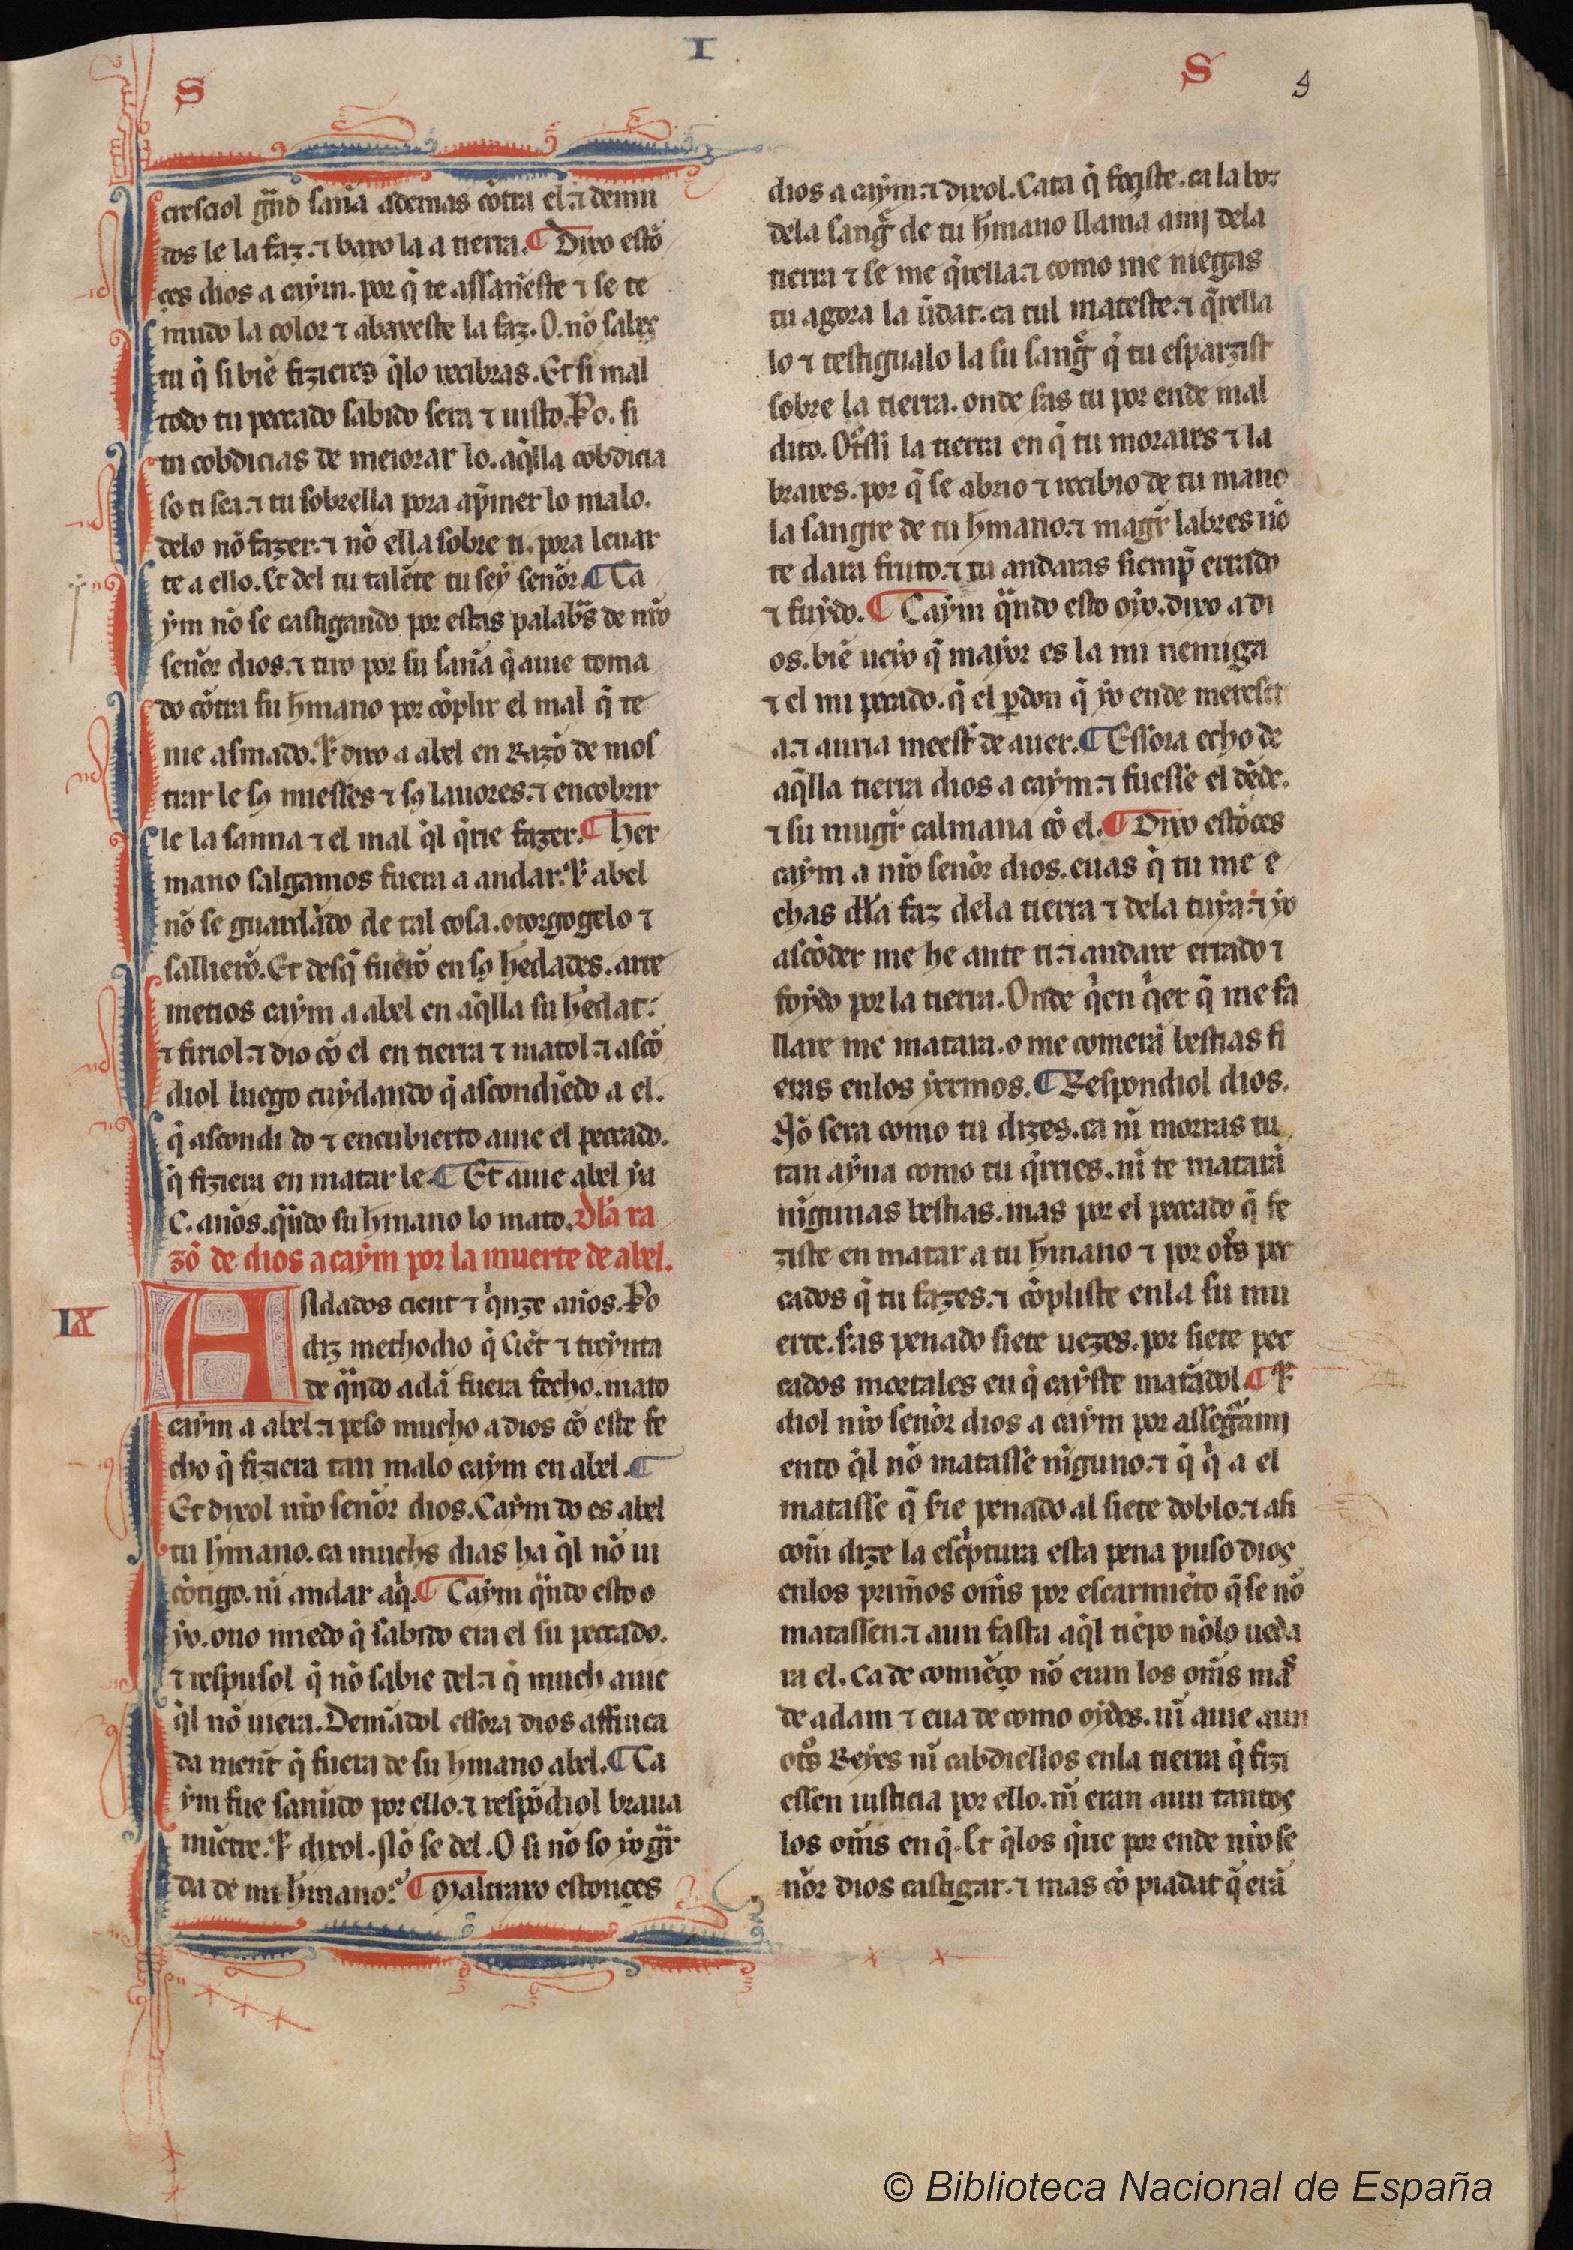 S
I
S
5
cresciol grãd sanna ademas cõtra el. ⁊ demu
dos le la faz. ⁊ baxo la a tierra. ¶ Dixo estõ
çes dios a caym. por q̃ te assanneste ⁊ se te
mudo la color ⁊ abaxeste la faz. O. nõ sabes
tu q̃ si biẽ fizieres q̃lo recibras. Et si mal
todo tu peccado sabido sera ⁊ uisto. Po. si
tu cobdicias de meiorar lo. aq̃lla cobdicia
so ti sea. ⁊ tu sobrella pora ap̃mer lo malo.
delo nõ fazer. ⁊ nõ ella sobre ti. pora leuar
te a ello. Et del tu talẽte tu sey señor. ¶ Ca
ym nõ se castigando por estas palabr̃s de nr̃o
señor dios. ⁊ tiro por su saña q̃ auie toma
do cõtra su hmano por cõplir el mal q̃ te
nie asmado. ⁊ dixo a abel en Razõ de mos
trar le sꝯ miesses ⁊ sꝯ lauores. ⁊ encobrir
le la sanna ⁊ el mal q̃l q̃rie fazer. ¶ her
mano salgamos fuera a andar. ⁊ abel
nõ se guardãdo de tal cosa. otorgogelo ⁊
sallierõ. Et desq̃ fuerõ en sꝯ hedades. arre
metios caym a abel en aq̃lla su hedat.
⁊ firiol. ⁊ dio cõ el en tierra ⁊ matol. ⁊ ascõ
diol luego cuydando q̃ ascondiẽdo a el.
q̃ ascondi do ⁊ encubierto auie el peccado.
q̃ fiziera en matar le. ¶ Et auie abel ya
C. años. q̃ndo su hmano lo mato. Dla ra
zõ de dios a caym por la muerte de abel.
IX
Andados cient ⁊ q̃nze años. Po
diz methodio q̃ Ciẽt ⁊ treynta
de q̃ndo adã fuera fecho. mato
caym a abel. ⁊ peso mucho a dios cõ este fe
cho q̃ fiziera tan malo caym en abel. ¶
Et dixol nr̃o señor dios. Caym do es abel
tu hmano. ca muchs dias ha q̃l nõ ui
cõtigo. nĩ andar aq̃. ¶ Caym q̃ndo esto o
yo. ouo miedo q̃ sabido era el su peccado.
⁊ respusol q̃ nõ sabie del. ⁊ q̃ much auie
q̃l nõ uiera. Demãdol essora dios affinca
da ment q̃ fuera de su hmano abel. ¶ Ca
ym fue sañudo por ello. ⁊ respõdiol braua
miẽtre. ⁊ dixol. Nõ se del. O si nõ so yo gr̃
da de mi hmano. ¶ Maltraxo estonçes
dios a caym. ⁊ dixol. Cata q̃ feziste. ca la boz
dela sang̃ de tu hmano llama a mi dela
tierra ⁊ se me q̃rella. ⁊ como me niegas
tu agora la ũdat. ca tul mateste. ⁊ q̃rella
lo ⁊ testigualo la su sang̃ q̃ tu esparzist
sobre la tierra. onde seas tu por ende mal
dito. Otr̃ssi la tierra en q̃ tu morares ⁊ la
brares. por q̃ se abrio ⁊ recibio de tu mano
la sangre de tu hmano. ⁊ magr̃ labres nõ
te dara fruto. ⁊ tu andaras siemp̃ errado
⁊ fuydo. ¶ Caym q̃ndo esto oyo. dixo a di
os. biẽ ueyo q̃ mayor es la mi nemiga
⁊ el mi peccado. q̃ el p̱don q̃ yo ende meresçi
a. ⁊ auria meest̃ de auer. ¶ Essora echo de
aq̃lla tierra dios a caym. ⁊ fuesse el dẽde.
⁊ su mugr̃ calmana cõ el. ¶ Dixo estõces
caym a nr̃o señor dios. euas q̃ tu me e
chas dla faz dela tierra ⁊ dela tuya. ⁊ yo
ascõder me he ante ti. ⁊ andare errado ⁊
foydo por la tierra. Onde q̃en q̃er q̃ me fa
llare me matara. o me comerã bestias fi
eras enlos yermos. ¶ Respondiol dios.
Nõ sera como tu dizes. ca nĩ morras tu
tan ayna como tu q̃rries. nĩ te matarã
nĩgunas bestias. mas por el peccado q̃ fe
ziste en matar a tu hmano ⁊ por otr̃s pec
cados q̃ tu fazes. ⁊ cõpliste enla su mu
erte. seras penado siete uezes. por siete pec
cados mortales en q̃ cayste matãdol. ¶ ⁊
diol nr̃o señor dios a caym por assegurami
ento q̃l nõ matasse nĩguno. ⁊ q̃ q̃ a el
matasse q̃ serie penado al siete doblo. ⁊ assi
com̃ dize la esc̃ptura esta pena puso dios
enlos prim̃os om̃s por escarmiẽto q̃ se nõ
matassen. ⁊ aun fasta aq̃l tiẽpo nõlo ueda
ra el. Ca de comiẽço nõ eran los om̃s mas
de adam ⁊ eua de como oydes. nĩ auie aun
otr̃s Reyes nĩ cabdiellos enla tierra q̃ fizi
essen iusticia por ello. nĩ eran aun tantos
los om̃s en q̃. Et q̃los q̃ue por ende nr̃o se
ñor dios castigar. ⁊ mas cõ piadat q̃ erã
© Biblioteca Nacional de España